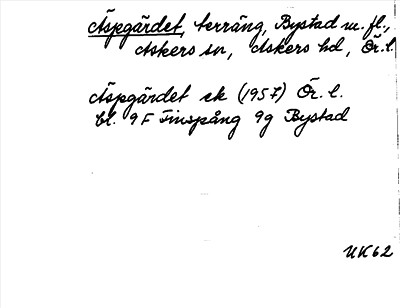 Äspgärdet, terräng, Bystad m. fl.,
Askers sn, Askers hd, Ör. l.
Äspgärdet ek (1957) Ör. l.
bl. 9F Finspång 9g Bystad
UK62